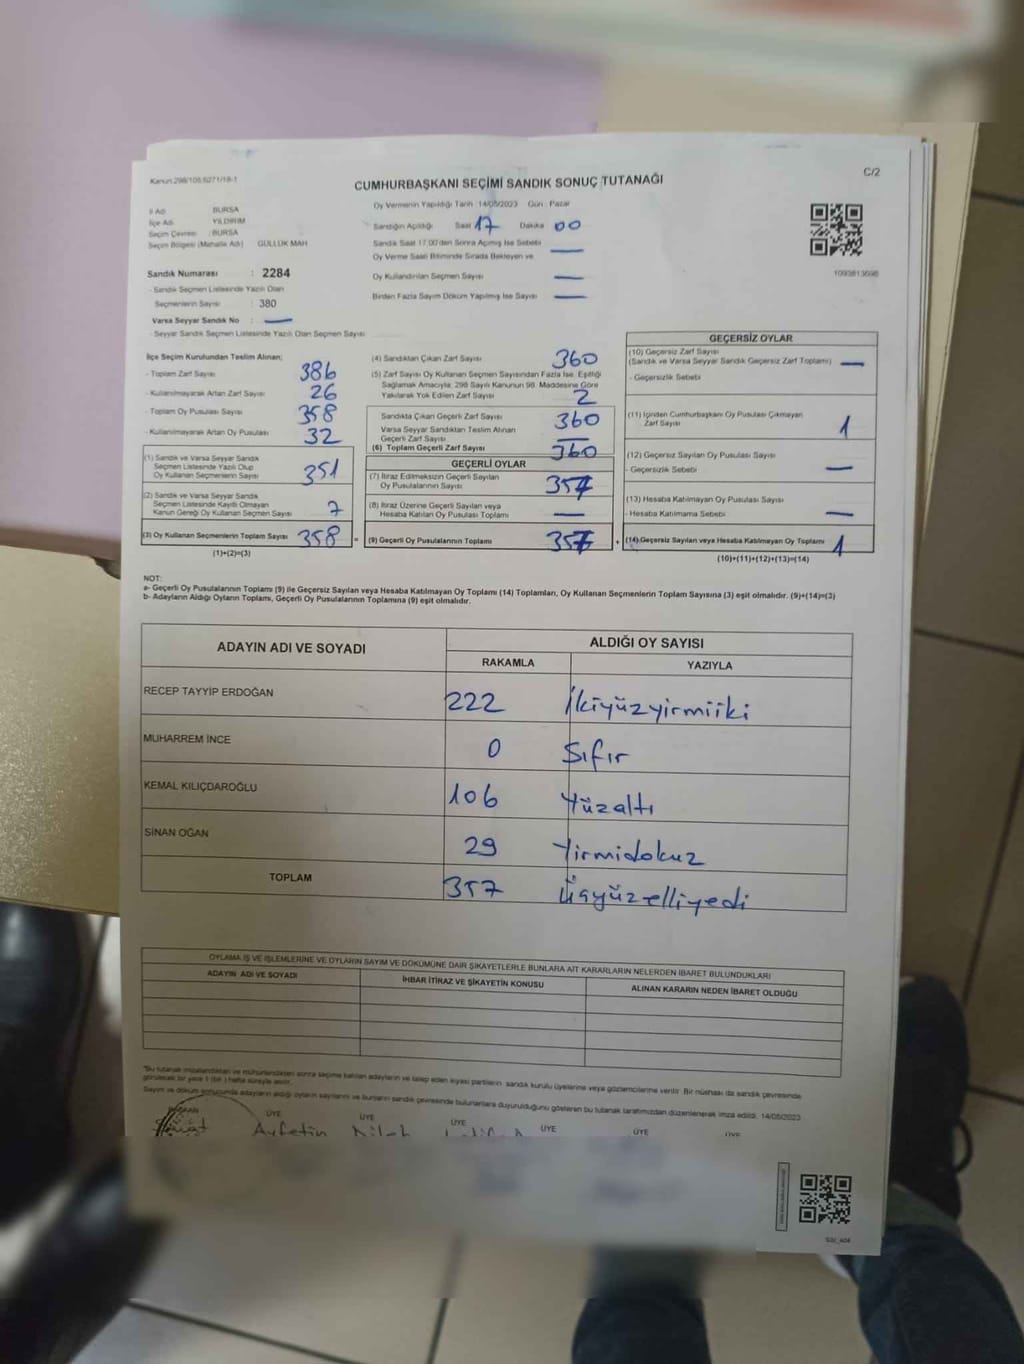 Kanun 298/105 6271/18-1
C/2
CUMHURBAŞKANI SEÇİMİ SANDIK SONUÇ TUTANAĞI
İl Adı BURSA
İlçe Adı YILDIRIM
Seçim Çevresi : BURSA
Seçim Bölgesi (Mahalle Adı) GÜLLÜK MAH
Sandık Numarası : 2284
- Sandık Seçmen Listesinde Yazılı Olan
Seçmenlerin Sayısı : 380
Varsa Seyyar Sandık No : —
- Seyyar Sandık Seçmen Listesinde Yazılı Olan Seçmen Sayısı
Oy Vermenin Yapıldığı Tarih :14/05/2023 Gün : Pazar
Sandığın Açıldığı Saat 17 Dakika 00
Sandık Saat 17.00'den Sonra Açılmış İse Sebebi —
Oy Verme Saati Bitiminde Sırada Bekleyen ve
Oy Kullandırılan Seçmen Sayısı —
Birden Fazla Sayım Döküm Yapılmış İse Sayısı —
1093813698
İlçe Seçim Kurulundan Teslim Alınan;
- Toplam Zarf Sayısı 386
- Kullanılmayarak Artan Zarf Sayısı 26
- Toplam Oy Pusulası Sayısı 358
- Kullanılmayarak Artan Oy Pusulası 32
(1) Sandık ve Varsa Seyyar Sandık
Seçmen Listesinde Yazılı Olup
Oy Kullanan Seçmenlerin Sayısı 351
(2) Sandık ve Varsa Seyyar Sandık
Seçmen Listesinde Kayıtlı Olmayan
Kanun Gereği Oy Kullanan Seçmen Sayısı 7
(3) Oy Kullanan Seçmenlerin Toplam Sayısı 358 =
(1)+(2)=(3)
(4) Sandıktan Çıkan Zarf Sayısı 360
(5) Zarf Sayısı Oy Kullanan Seçmen Sayısından Fazla İse, Eşitliği
Sağlamak Amacıyla; 298 Sayılı Kanunun 98. Maddesine Göre
Yakılarak Yok Edilen Zarf Sayısı 2
Sandıkta Çıkan Geçerli Zarf Sayısı 360
Varsa Seyyar Sandıktan Teslim Alınan
Geçerli Zarf Sayısı —
(6) Toplam Geçerli Zarf Sayısı 360
GEÇERLİ OYLAR
(7) İtiraz Edilmeksizin Geçerli Sayılan
Oy Pusulalarının Sayısı 357
(8) İtiraz Üzerine Geçerli Sayılan veya
Hesaba Katılan Oy Pusulası Toplamı —
(9) Geçerli Oy Pusulalarının Toplamı 357 +
GEÇERSİZ OYLAR
(10) Geçersiz Zarf Sayısı
(Sandık ve Varsa Seyyar Sandık Geçersiz Zarf Toplamı) —
- Geçersizlik Sebebi
(11) İçinden Cumhurbaşkanı Oy Pusulası Çıkmayan
Zarf Sayısı 1
(12) Geçersiz Sayılan Oy Pusulası Sayısı
- Geçersizlik Sebebi —
(13) Hesaba Katılmayan Oy Pusulası Sayısı
- Hesaba Katılmama Sebebi —
(14) Geçersiz Sayılan veya Hesaba Katılmayan Oy Toplamı 1
(10)+(11)+(12)+(13)=(14)
NOT:
a- Geçerli Oy Pusulalarının Toplamı (9) ile Geçersiz Sayılan veya Hesaba Katılmayan Oy Toplamı (14) Toplamları, Oy Kullanan Seçmenlerin Toplam Sayısına (3) eşit olmalıdır. (9)+(14)=(3)
b- Adayların Aldığı Oyların Toplamı, Geçerli Oy Pusulalarının Toplamına (9) eşit olmalıdır.
ADAYIN ADI VE SOYADI ALDIĞI OY SAYISI
RAKAMLA YAZIYLA
RECEP TAYYİP ERDOĞAN 222 İkiyüzyirmiiki
MUHARREM İNCE 0 Sıfır
KEMAL KILIÇDAROĞLU 106 Yüzaltı
SİNAN OĞAN 29 Yirmidokuz
TOPLAM 357 Üçyüzelliyedi
OYLAMA İŞ VE İŞLEMLERİNE VE OYLARIN SAYIM VE DÖKÜMÜNE DAİR ŞİKAYETLERLE BUNLARA AİT KARARLARIN NELERDEN İBARET BULUNDUKLARI
ADAYIN ADI VE SOYADI İHBAR İTİRAZ VE ŞİKAYETİN KONUSU ALINAN KARARIN NEDEN İBARET OLDUĞU
*Bu tutanak imzalandıktan ve mühürlendikten sonra seçime katılan adayların ve talep eden siyasi partilerin sandık kurulu üyelerine veya gözlemcilerine verilir. Bir nüshası da sandık çevresinde
görülecek bir yere 1 (bir) hafta süreyle asılır.
Sayım ve döküm sonucunda adayların aldığı oyların sayılarını ve bunların sandık çevresinde bulunanlara duyurulduğunu gösteren bu tutanak tarafımızdan düzenlenerek imza edildi. 14/05/2023
BAŞKAN ÜYE ÜYE ÜYE ÜYE ÜYE ÜYE